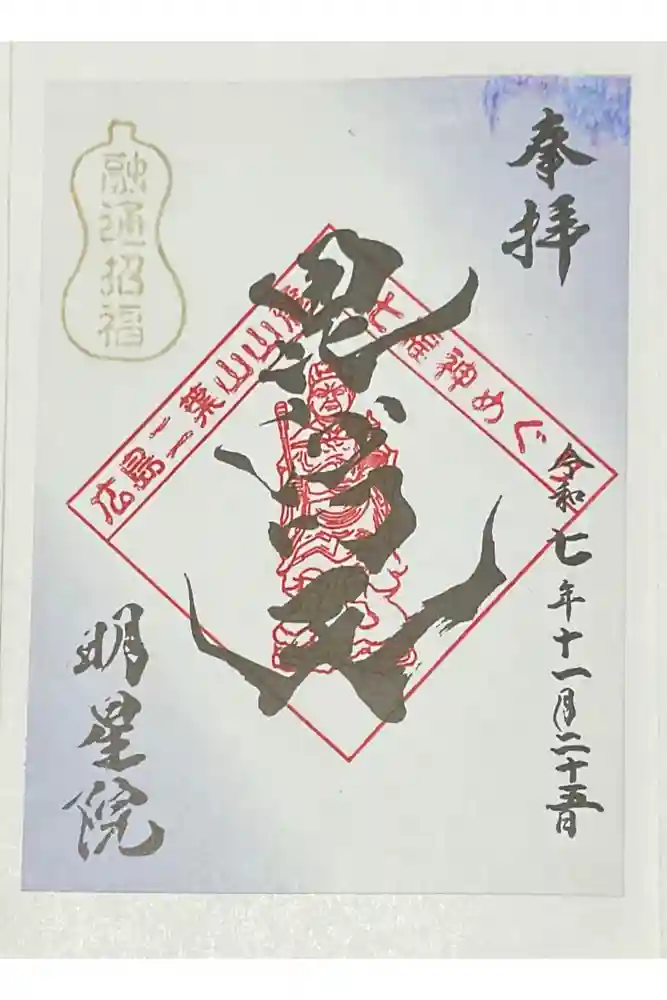 奉拝
令和七年十一月二十五日
毘沙門天
広島二葉山山麓
七福神めぐ
融通招福
明星院